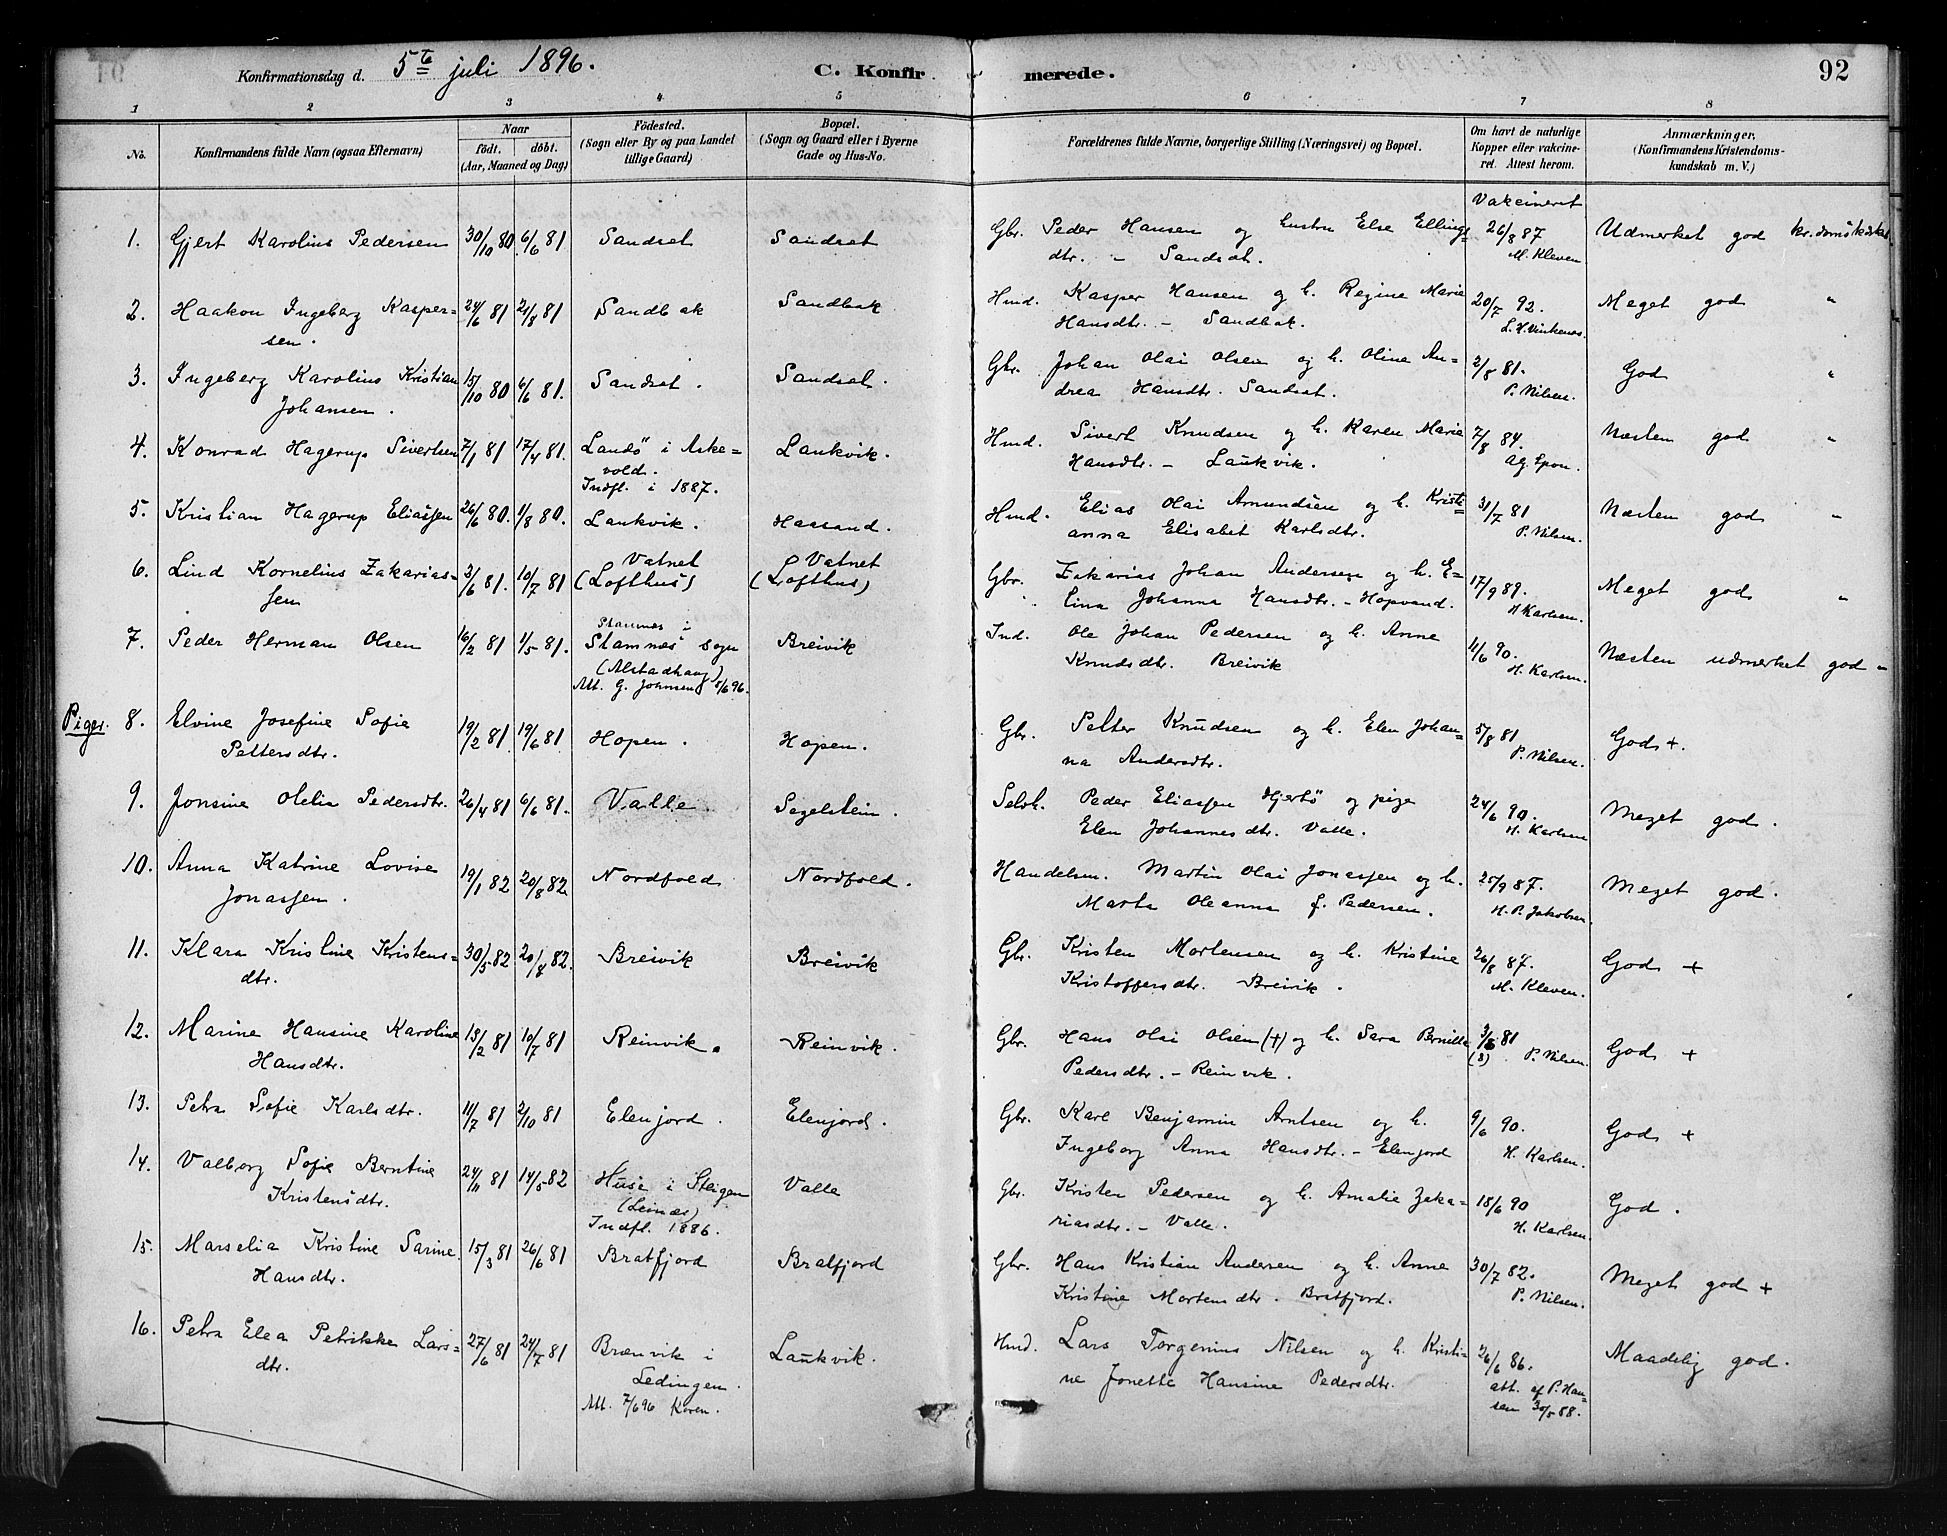 Konfirmationsdag d. 5te juli 1896. C. Konfirmerede. 92
1 2 3 4 5 6 7 8
No. Konfirmandens fulde Navn (ogsaa Efternavn) Naar födt. döbt. (Aar, Maaned og Dag) Födested. (Sogn eller By og paa Landet tillige Gaard) Bopæl. (Sogn og Gaard eller i Byerne Gade og Hus-No. Forældrenes fulde Navne, borgerlige Stilling (Næringsvei) og Bopæl. Om havt de naturlige Kopper eller vakcineret. Attest herom. Anmærkninger. (Konfirmandens Kristendomskundskab m. V.)
Vakcineret
1. Gjert Karolius Pedersen 30/10 80. 6/6 81. Sandset Sandset Gbr. Peder Hansen og hustru Else Ellings= 26/8 87 Udmerket god kr.domskdskab
dtr. - Sandset. M. Kleven
2. Haakon Ingeberg Kasper= 24/6 81 21/8 81 Sandbak Sandbak Hmd. Kasper Hansen og h. Regine Marie 20/7 92. Meget god "
sen. Hansdtr. - Sandbak. L. H. Vinkenes
3. Ingeberg Karolius Kristian 15/10 80 6/6 81. Sandset. Sandset. Gbr. Johan Olai Olsen og h. Oline An= 2/8 81. God "
Johansen. drea Hansdtr. Sandset. P. Nilsen.
4. Konrad Hagerup Sivertsen 7/1 81 17/4 81. Landö i Aske= Laukvik. Hmd. Sivert Knudsen og h. Karen Marie 7/8 84. Næsten god "
vold. Hansdtr. - Laukvik.
Indfl. i 1887.
5. Kristian Hagerup Eliassen 26/6 80. 1/8 80. Laukvik. Hassand. Hmd. Elias Olai Amundsen og h. Kristi= 31/7 81 Næsten god "
anna Elisabet Karlsdtr. P. Nilsen.
6. Lind Kornelius Zakarias= 3/6 81. 10/7 81 Vatnet Vatnet Gbr. Zakarias Johan Andersen og h. E= 17/9 89. Meget god "
sen (Lofthus) (Lofthus) lina Johanna Hansdtr. - Hopvand. H. Karlsen.
7. Peder Herman Olsen 16/2 81 1/5 81. Stamnes i Stamnes sogn Breivik Ind. Ole Johan Pedersen og h. Anne 4/6 90. Næsten udmerket god "
(Alstadhaug) Knudsdtr. Breivik H. Karlsen.
Att. G. Johnsen 5/6 96.
Piger. 8. Elvine Josefine Sofie 19/2 81. 19/6 81 Hopen. Hopen. Gbr. Petter Knudsen og h. Elen Johan= 5/8 81 God +.
Pettersdtr. na Andersdtr. P. Nilsen.
9. Jonsine Olelia Pedersdtr. 26/4 81 6/6 81. Valle Segelstein. Selvh. Peder Eliassen Hjertö og pige 24/6 90. Meget god.
Elen Johannesdtr. Valle. H. Karlsen
10. Anna Katrine Lovise 19/1 82 20/8 82. Nordfold Nordfold. Handelsm. Martin Olai Jonassen og h. 25/9 87. Meget god.
Jonassen. Marta Oleanna f. Pedersen. H. P. Jakobsen.
11. Klara Kristine Kristens= 30/5 82. 20/8 82. Breivik Breivik Gbr. Kristen Mortensen og h. Kristine 26/8 87. God +
dtr. Kristoffersdtr. Breivik. M. Kleven.
12. Marine Hansine Karoline 13/2 81 10/7 81 Reinvik. Reinvik. Gbr. Hans Olai Olsen (+) og h. Sara Bernille 3/8 81 God +
Hansdtr. Pedersdtr. - Reinvik. (8) P. Nilsen.
13. Petra Sofie Karlsdtr. 11/7 81 2/10 81 Elenjord. Elenjord. Gbr. Karl Benjamin Arntsen og h. 9/6 90. God +
Ingeborg Anna Hansdtr. - Elenjord H. Karlsen.
14. Valborg Sofie Berntine 24/11 81 14/5 82 Huse i Steigen Valle Gbr. Kristen Pedersen og h. Amalie Zaka= 18/6 90 God.
Kristensdtr. (Leines) riasdtr. - Valle. H. Karlsen.
Indfl. 1886.
15. Marselia Kristine Sarine 15/3 81 26/6 81 Bratfjord Bratfjord Gbr. Hans Kristian Andersen og h. Anne 30/7 82. Meget god +
Hansdtr. Kristine Mortensdtr. Bratfjord. P. Nilsen.
16. Petra Elea Petrikke Lars= 27/6 81 24/7 81 Brænvik i Laukvik. Hmd. Lars Torgenius Nilsen og h. Kristi= 26/6 86. Maadelig god.
dtr. Lødingen. ne Jonette Hansine Pedersdtr. att. af P. Han=
Att. 7/6 96 Koren. sen 30/5 88.